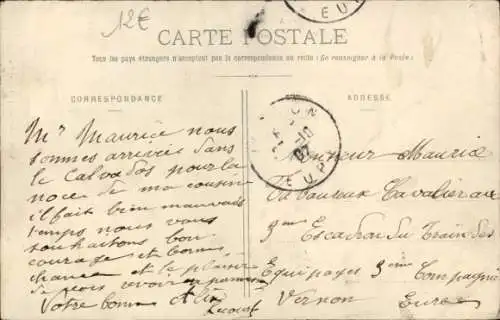 12€
CARTE POSTALE
Tous les pays étrangers n'acceptent pas la correspondance au recto (Se renseigner à la Poste)
CORRESPONDANCE
ADRESSE
EURE
Mr Maurice nous
sommes arrivée dans
le Calvados pour la
noce de ma cousine
il fait bien mauvais
temps nous vous
souhaitons bon
courage et bonne
chance et le plaisir
de vous revoir en permission
Votre bonne
Monsieur Maurice
Cavalier au
3eme Escadron du Train des
Equipages 3eme Compagnie
Vernon Eure